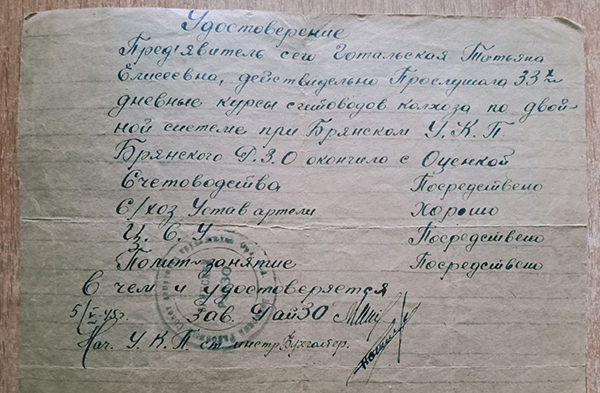 Удостоверение
Предявитель сего Готальская Татьяна
Елисеевна, действидельно Прослушала 33х
дневные курсы счетоводов колхоза по двой-
ной системе при Брянском У.К.П
Брянского Р.З.О окончила с Оценкой
Счетоводства Посредствено
С/хоз Устав артели Хорошо
Ц. С. У. Посредствено
Полит-занятие Посредствено
В чем и удостоверяется
Зав. РайЗО
Нач. У.К.П. ст инстр. Бухгалтер.